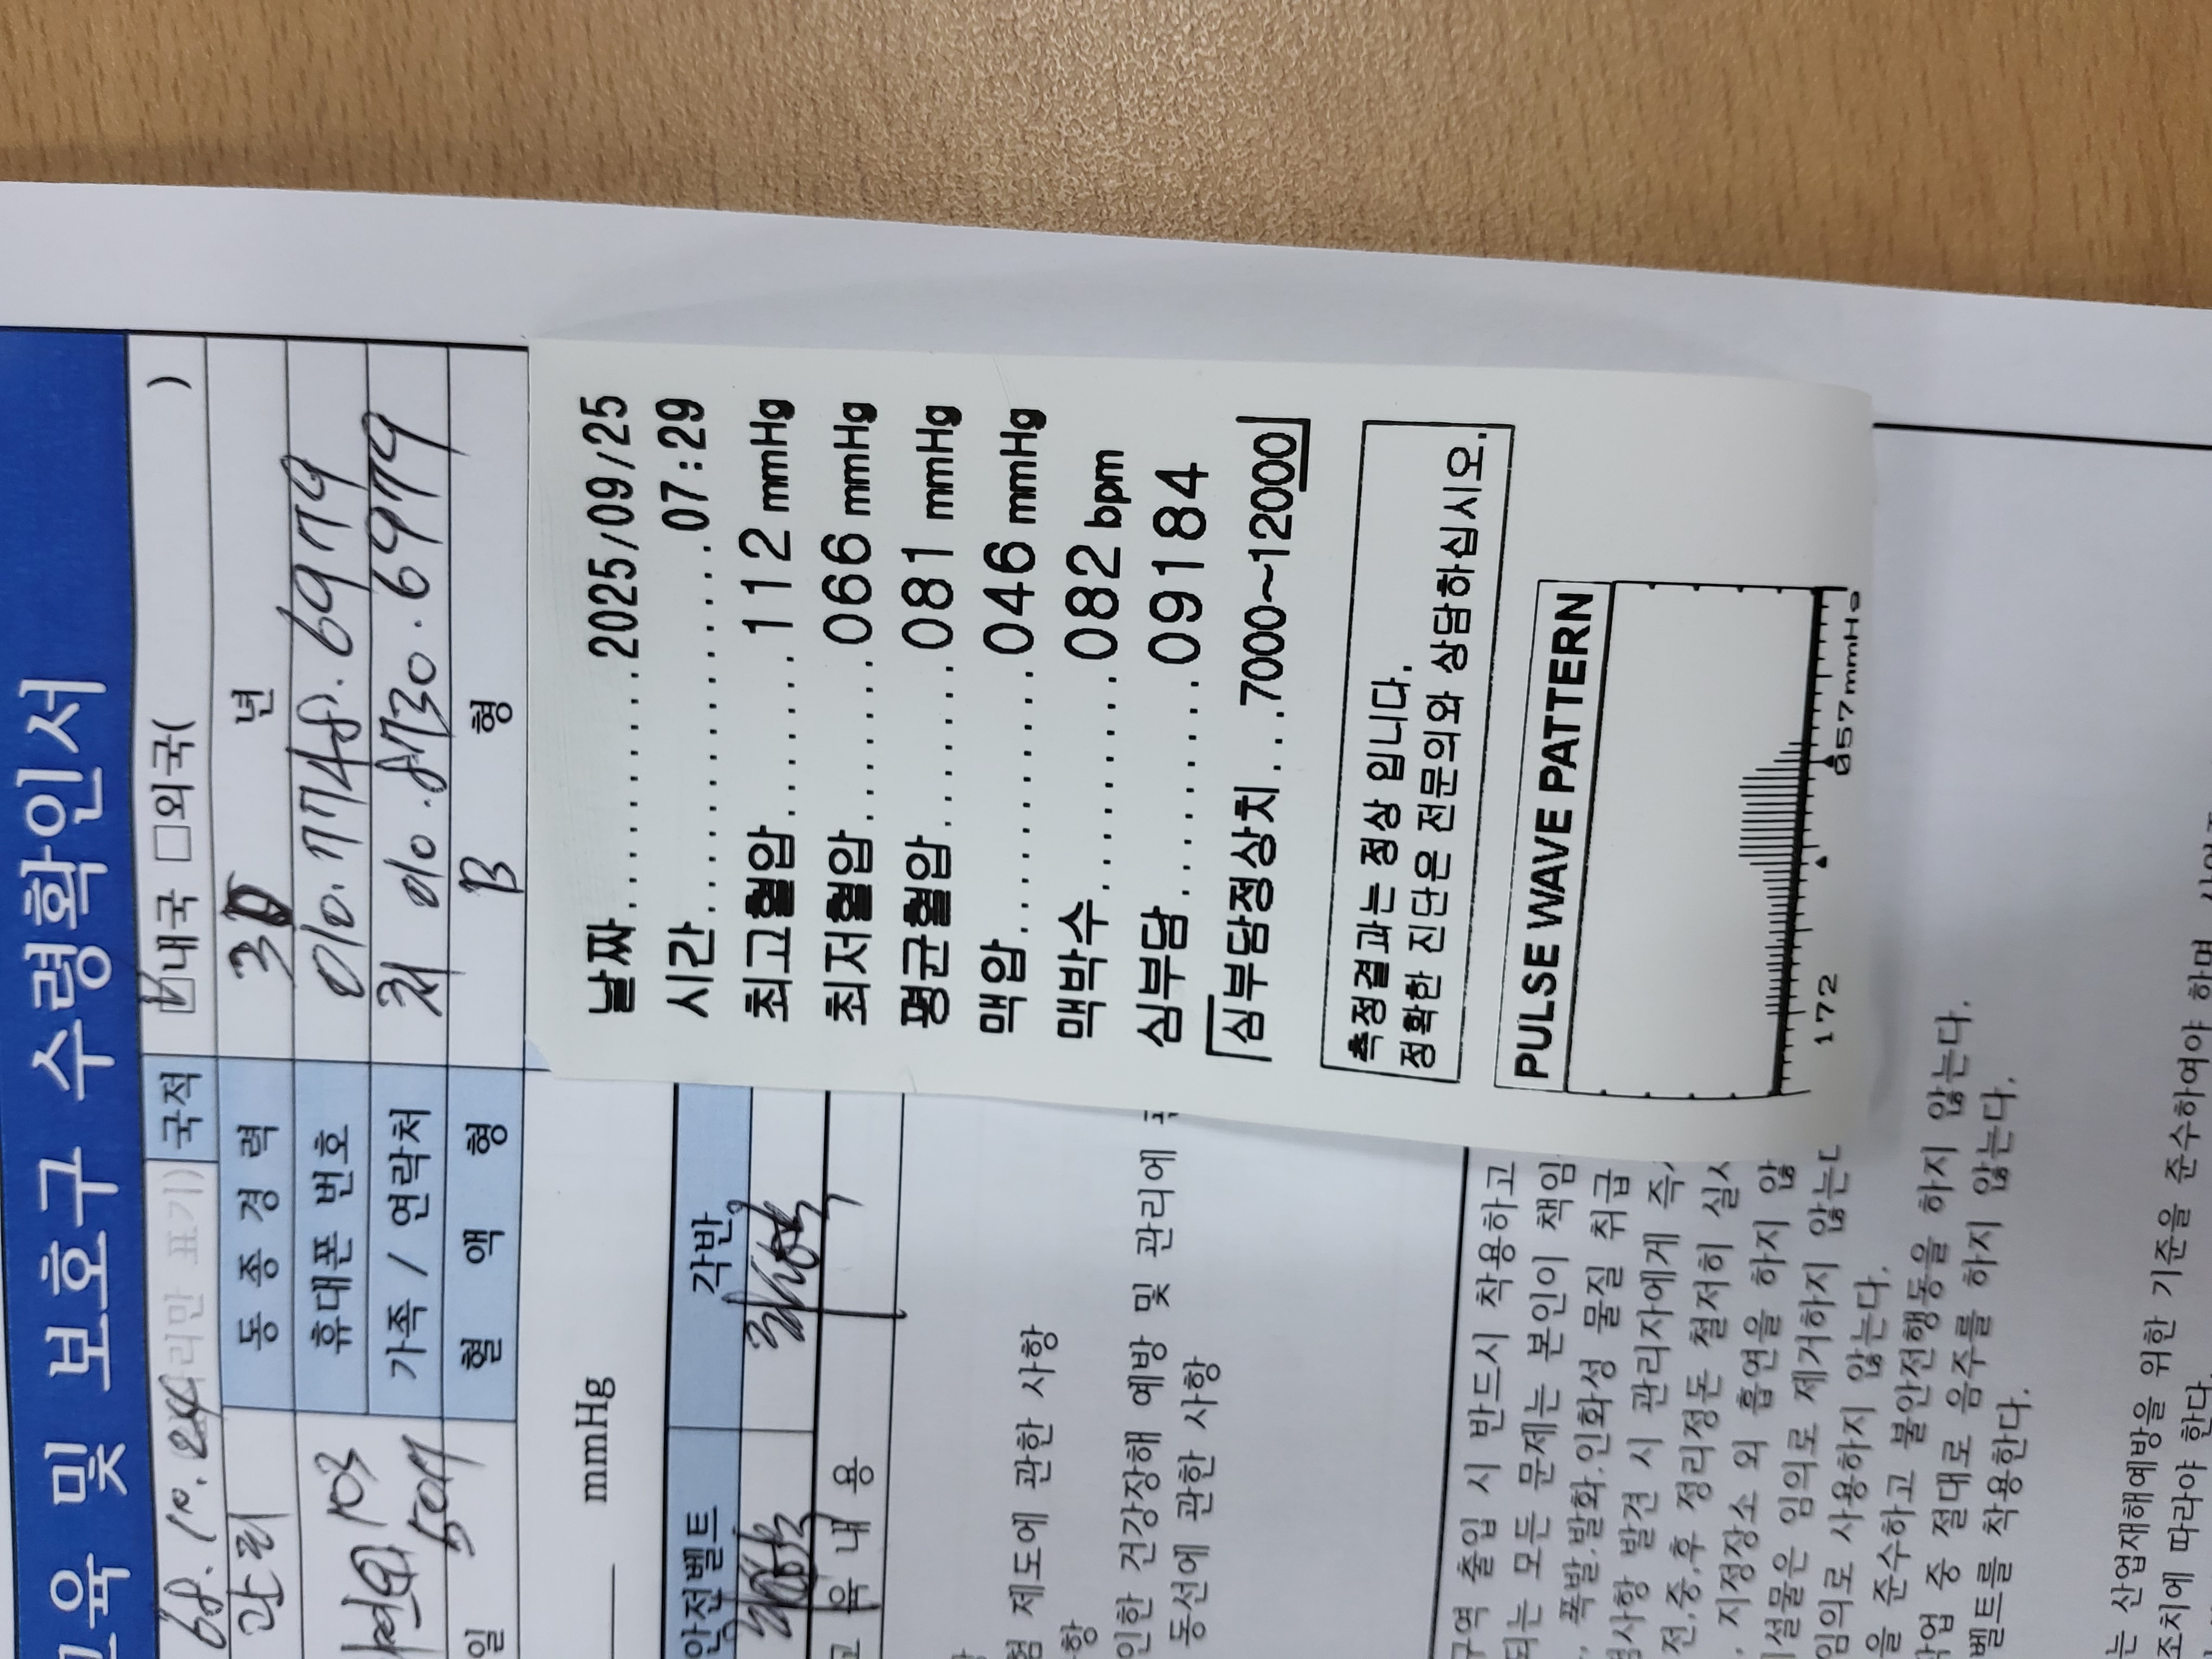 육 및 보호구 수령확인서
68. 10. 24 국적 ☑내국 □외국( )
관리 동 종 경 력 3 년
103 휴대폰 번호 010. 7748. 6979
가족 / 연락처 처 010. 8730. 6979
일 혈 액 형 B 형
mmHg
안전벨트 각반
육 내 용
제도에 관한 사항
인한 건강장해 예방 및 관리에
동선에 관한 사항
날짜.............2025/09/25
시간.............07:29
최고혈압.......112 mmHg
최저혈압.......066 mmHg
평균혈압.......081 mmHg
맥압.............046 mmHg
맥박수..........082 bpm
심부담..........09184
심부담정상치....7000~12000
측정결과는 정상 입니다.
정확한 진단은 전문의와 상담하십시오.
PULSE WAVE PATTERN
172 057mmHg
구역 출입 시 반드시 착용하고
되는 모든 문제는 본인이 책임
폭발,발화,인화성 물질 취급
사항 발견 시 관리자에게 즉
전,중,후 정리정돈 철저히 실시
, 지정장소 외 흡연을 하지 않
설물은 임의로 제거하지 않는다
임의로 사용하지 않는다.
을 준수하고 불안전행동을 하지 않는다.
작업 중 절대로 음주를 하지 않는다.
벨트를 착용한다.
는 산업재해예방을 위한 기준을 준수하여야 하며
조치에 따라야 한다.